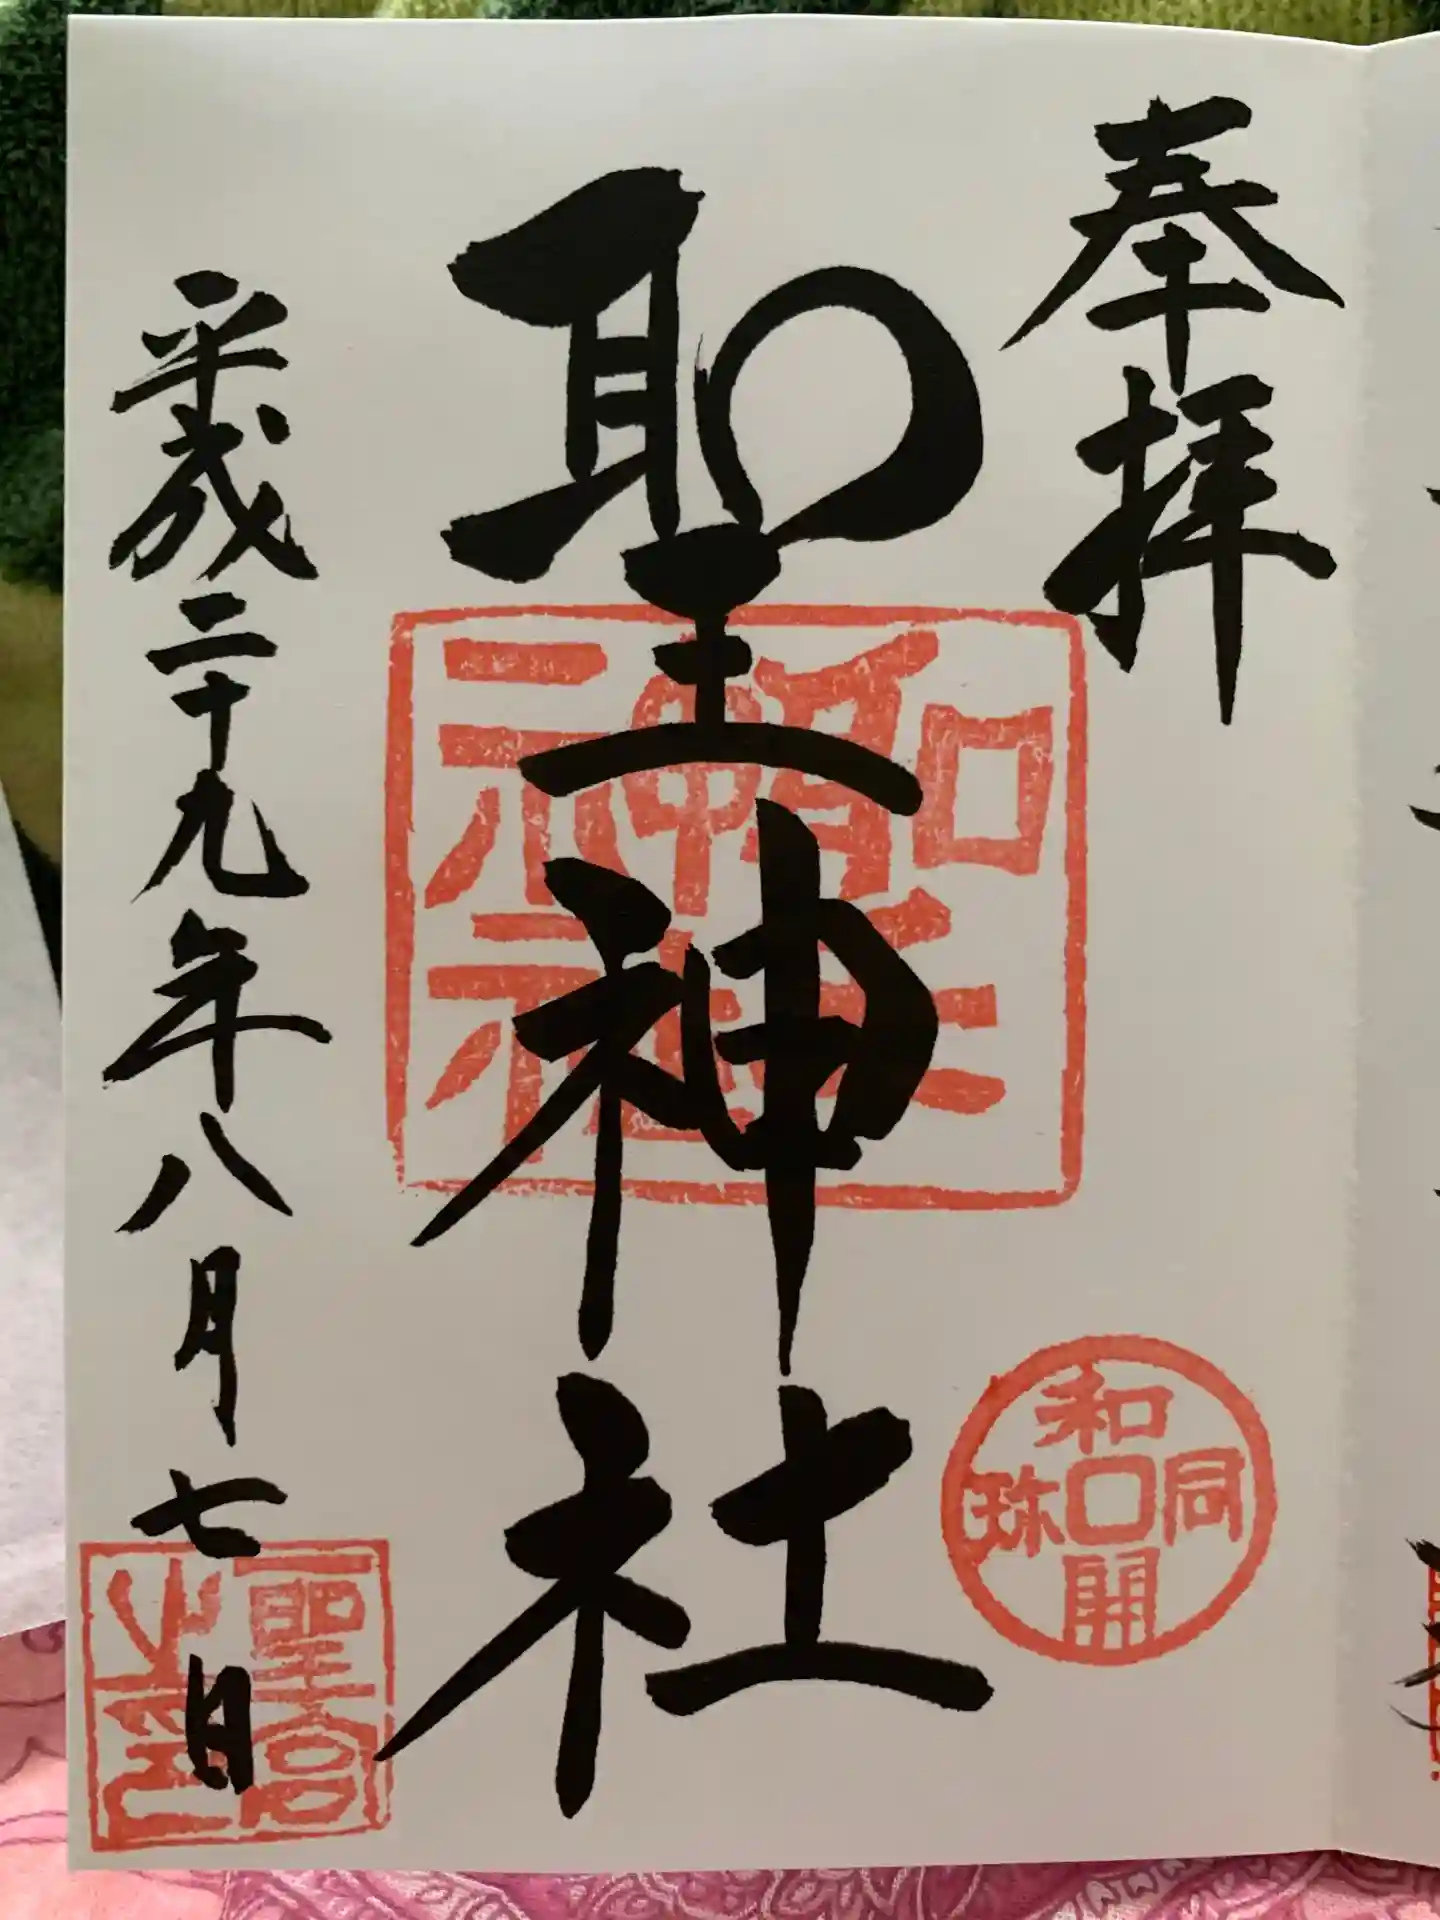 奉拝
聖神社
平成二十九年八月七日
聖神社
和同開珎
聖宮之印